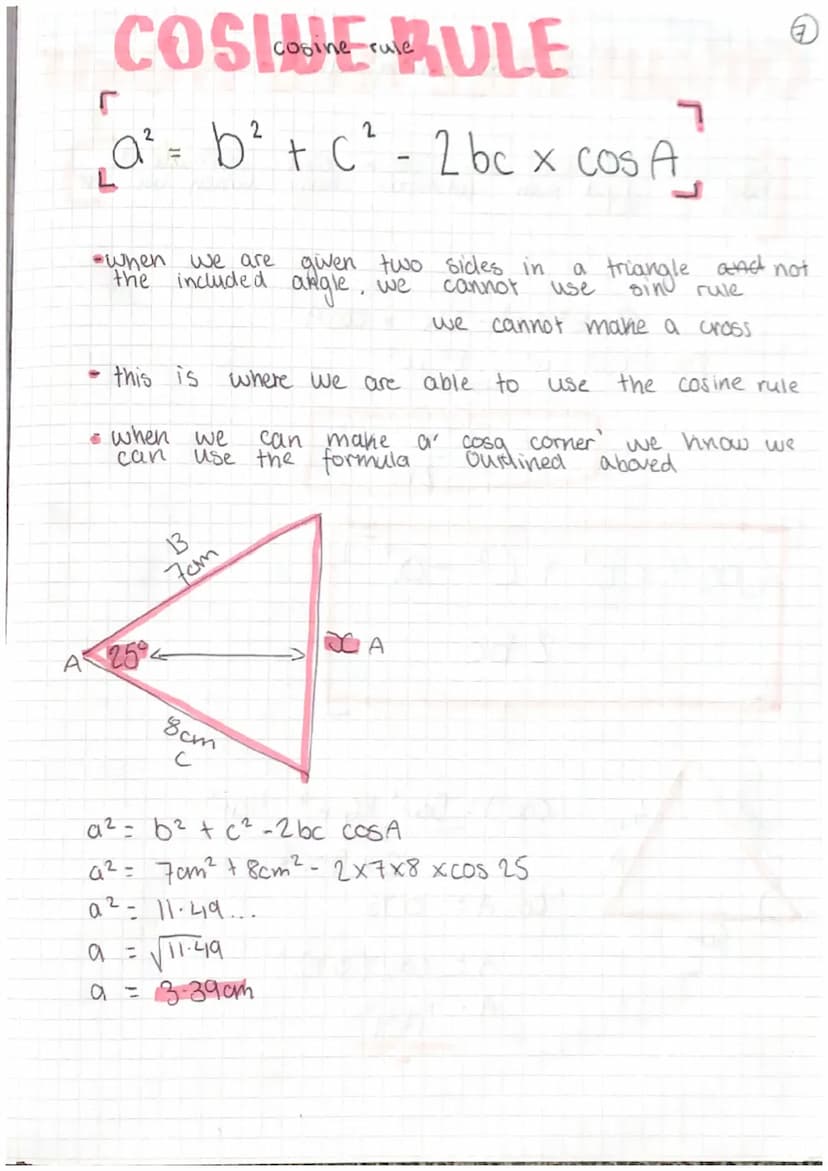 7
COSINE RULE
cosine rule
a² = b² + c² - 2bc x cos A
•when we are given two sides in a triangle and not
the included angle, we cannot use sine rule
we cannot make a cross
• this is where we are able to use the cosine rule
• when we can make a 'cosa corner' we know we
can use the formula ourlined aboved
B
7cm
A 25° x A
8cm
C
a² = b² + c² - 2bc cosA
a² = 7cm² + 8cm² - 2x7x8 xcos 25
a² = 11.49...
a = √11.49
a = 3.39cm